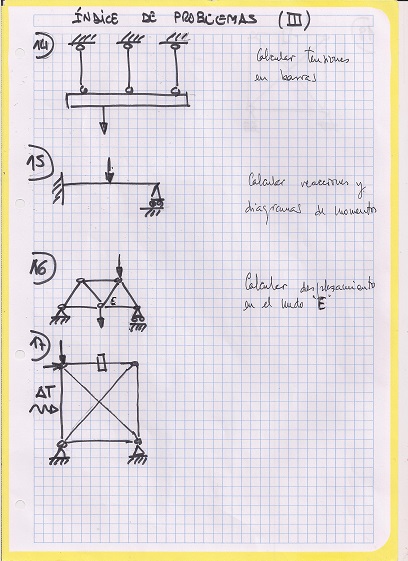 ÍNDICE DE PROBLEMAS (III)
14
Calcular tensiones
en barras
15
Calcular reacciones y
diagramas de momentos
16
E
Calcular desplazamiento
en el nudo "E"
17
ΔT